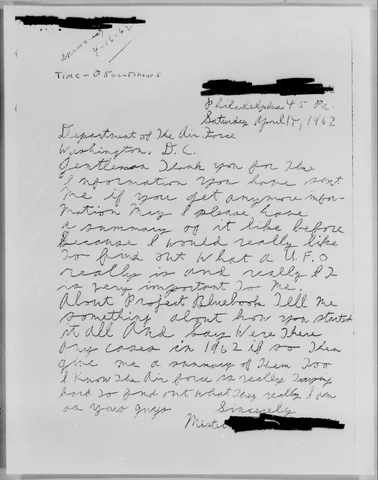 4-16-62
TIME - 0800-0 hours
Philadelphia 45 Pa.
Saturday April 14, 1962
Department of The Air Force
Washington. D.C.
Gentleman Thank you for The
Information you have sent
me if you get anymore infor-
mation May I please have
a summary of it like before
Because I would really like
To find out what a U.F.O
really is and really IT
is very important To me.
About Project Bluebook Tell me
something about how you started
it all And say Were There
any cases in 1962 if so Then
give me a summary of Them Too
I Know The Air force is really Trying
hard To find out what They really I am
on your guys Sincerely
Mister